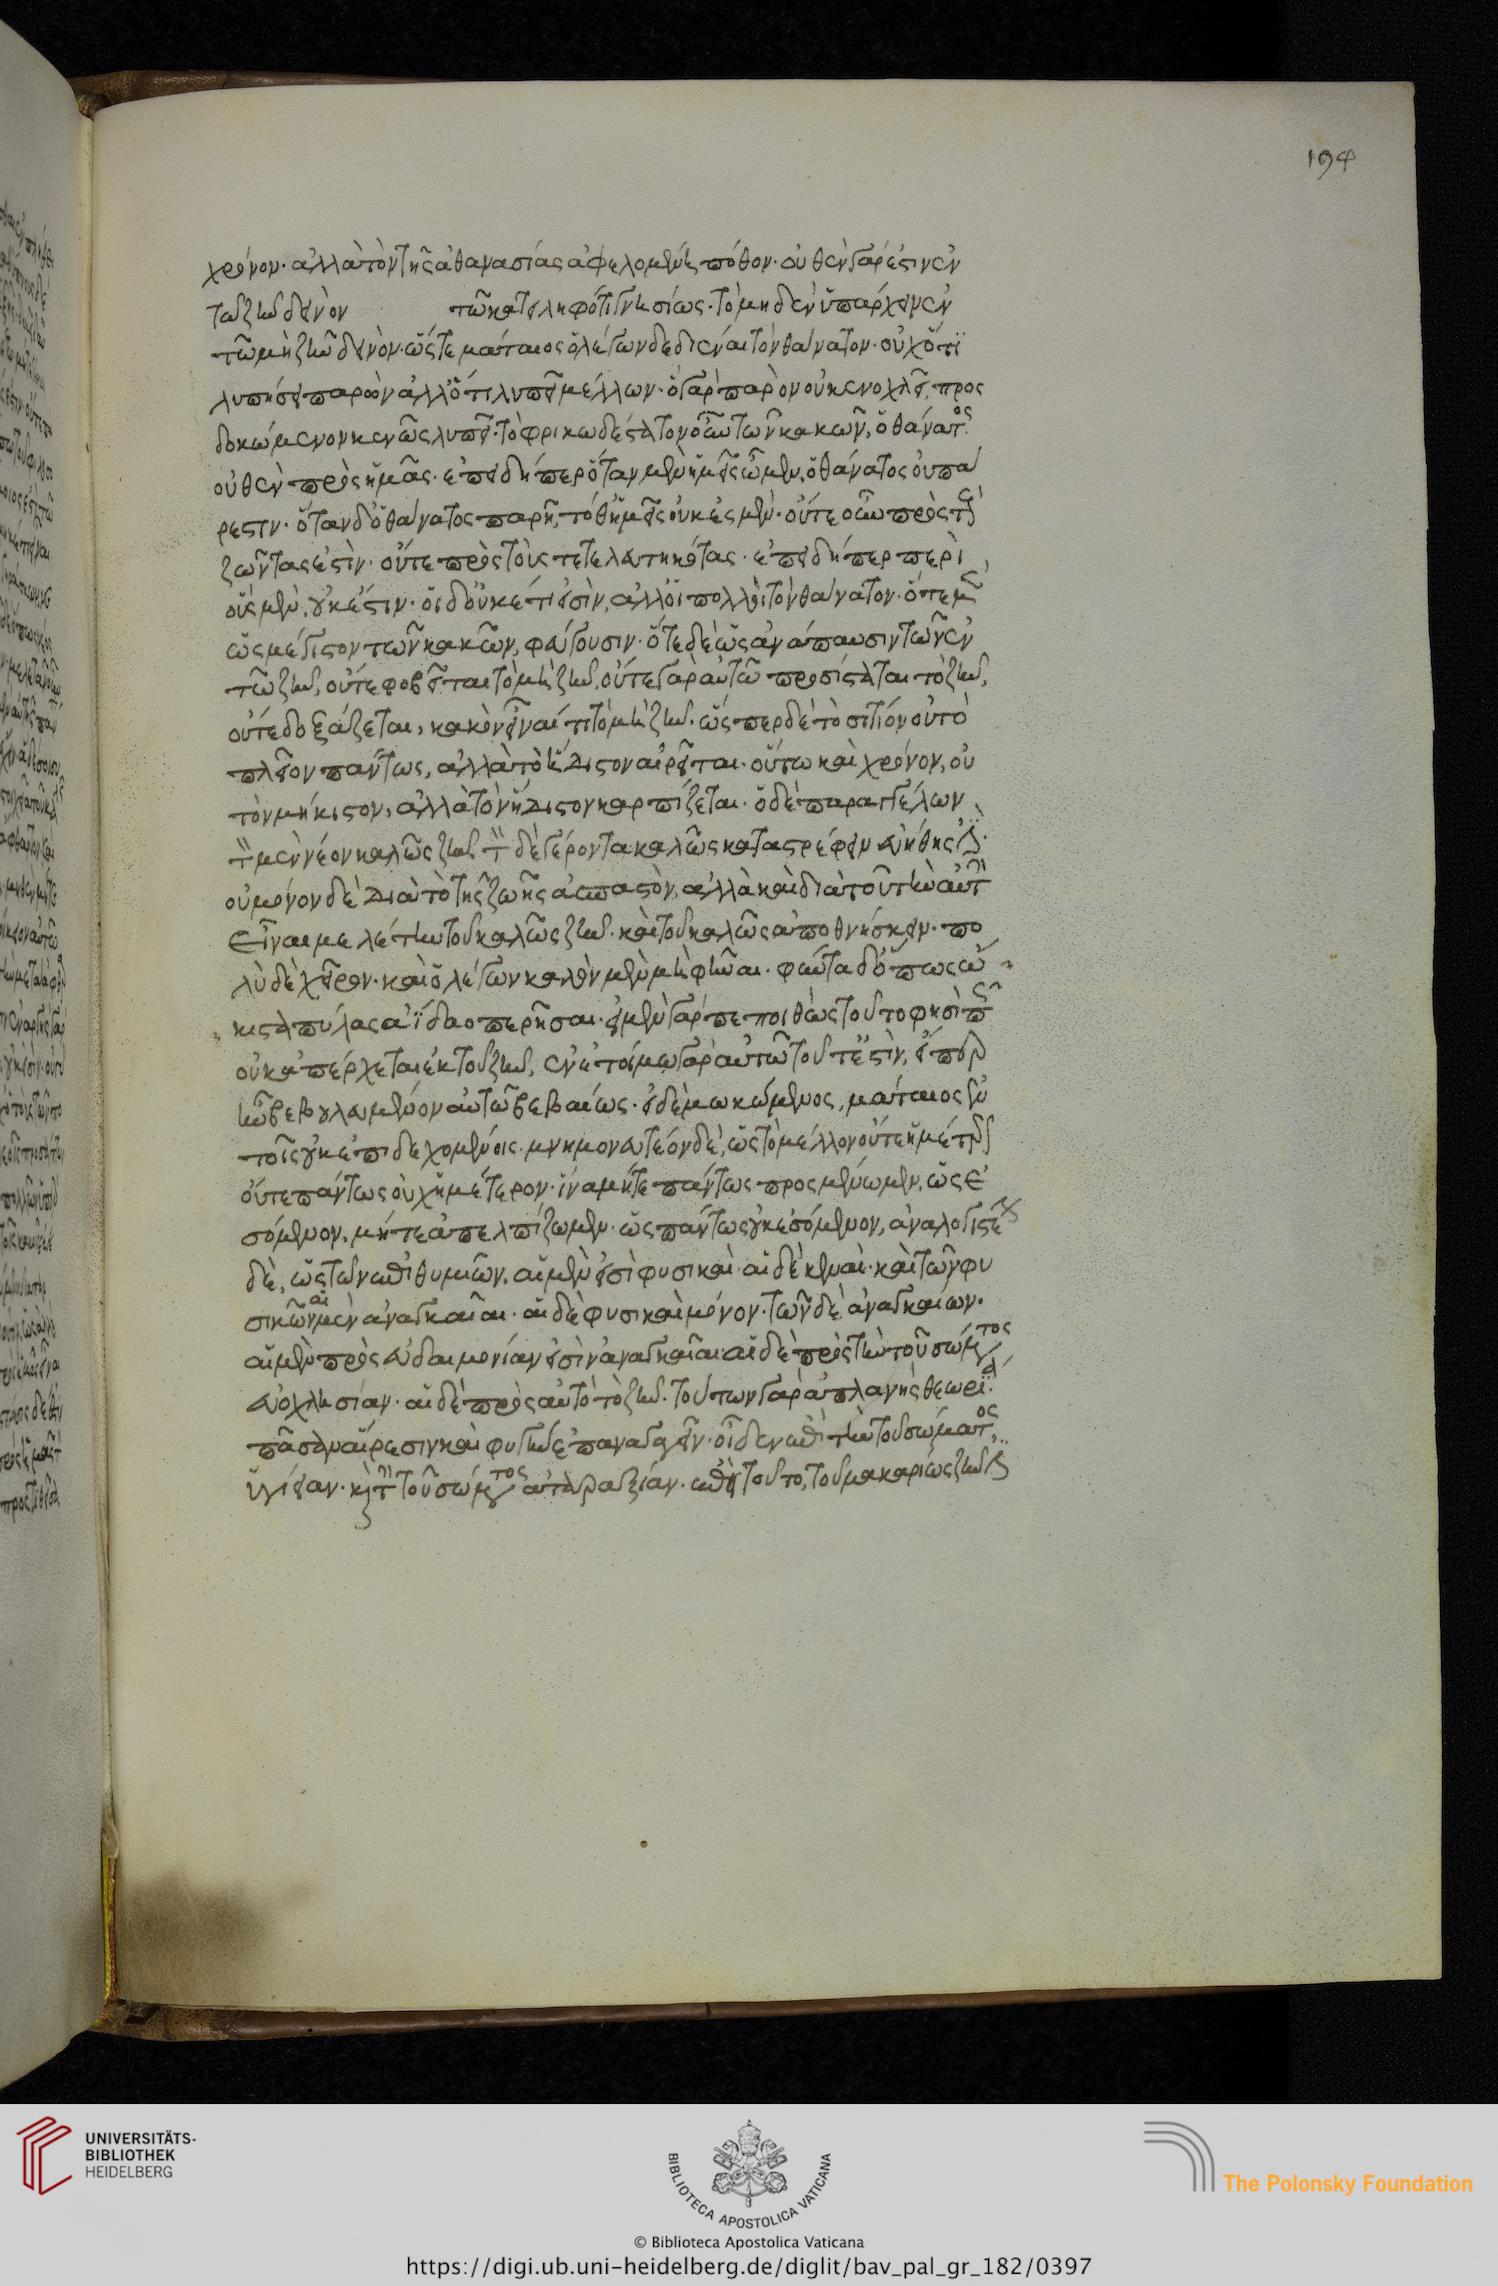 194
χρόνον· ἀλλὰ τὸν τῆς ἀθανασίας ἀφελομένη πόθον· οὐθὲν γάρ ἐστιν ἐν
τῶ ζῆν δεινὸν τῶ κατειληφότι γνησίως· τὸ μηδὲν ὑπάρχειν ἐν
τῶ μὴ ζῆν δεινόν· ὥστε μάταιος ὁ λέγων δεδιέναι τὸν θάνατον· οὐχ ὅτι
λυπήσει παρὼν ἀλλ' ὅτι λυπεῖ μέλλων· ὃ γὰρ παρὸν οὐκ ἐνοχλεῖ, προσ
δοκώμενον κενῶς λυπεῖ· τὸ φρικωδέστατον οὖν τῶν κακῶν, ὁ θάνατος
οὐθὲν πρὸς ἡμᾶς· ἐπειδήπερ ὅταν μὲν ἡμεῖς ὦμεν, ὁ θάνατος οὐ πά
ρεστιν· ὅταν δ' ὁ θάνατος παρῆ, τόθ' ἡμεῖς οὐκ ἐσμέν· οὔτε οὖν πρὸς τοὺς
ζῶντας ἐστὶν· οὔτε πρὸς τοὺς τετελευτηκότας· ἐπειδήπερ περὶ
οὓς μὲν, οὐκ ἔστιν· οἱ δ' οὐκέτι εἰσὶν, ἀλλ' οἱ πολλοὶ τὸν θάνατον· ὁτὲ μὲν
ὡς μέγιστον τῶν κακῶν, φεύγουσιν· ὁτὲ δὲ ὡς ἀνάπαυσιν τῶν ἐν
τῶ ζῆν, οὔτε φοβεῖται τὸ μὴ ζῆν, οὔτε γὰρ αὐτῶ προσίσταται τὸ ζῆν,
οὔτε δοξάζεται, κακὸν εἶναί τι τὸ μὴ ζῆν· ὥσπερ δὲ τὸ σιτίον οὐ τὸ
πλεῖον πάντως, ἀλλὰ τὸ ἥδιστον αἱρεῖται· οὕτω καὶ χρόνον, οὐ
τὸν μήκιστον, ἀλλὰ τὸν ἥδιστον καρπίζεται· ὁ δὲ παραγγέλων
τὸν μὲν νέον καλῶς ζῆν τὸν δὲ γέροντα καλῶς καταστρέφειν εὐήθης ἐστὶν·
οὐ μόνον δὲ διὰ τὸ τῆς ζωῆς ἀσπαστὸν, ἀλλὰ καὶ διὰ τοῦ τὴν αὐτὴν
εἶναι μελέτην τοῦ καλῶς ζῆν· καὶ τοῦ καλῶς ἀποθνήσκειν· πο
λὺ δὲ χεῖρον· καὶ ὁ λέγων καλὸν μὲν μὴ φῦναι· φύντα δ' ὅπως ὤ
κιστα πύλας ἀΐδαο περῆσαι· εἰ μὲν γὰρ πεποιθὼς τοῦτο φησὶ πῶς
οὐκ ἀπέρχεται ἐκ τοῦ ζῆν, ἐν ἑτοίμω γὰρ αὐτῶ τοῦτ' ἐστὶν, εἴπερ
ἦν βεβουλευμένον αὐτῶ βεβαίως· εἰ δὲ μωκώμενος, μάταιος ἐν
τοῖς οὐκ ἐπιδεχομένοις· μνημονευτέον δὲ, ὡς τὸ μέλλον οὔτε ἡμέτερον
οὔτε πάντως οὐχ ἡμέτερον· ἵνα μήτε πάντως προσμένωμεν, ὡς ἐ
σόμενον, μήτε ἀπελπίζωμεν· ὡς πάντως οὐκ ἐσόμενον, ἀναλογιστέον
δὲ, ὡς τῶν ἐπιθυμιῶν, αἱ μὲν εἰσὶ φυσικαὶ· αἱ δὲ κεναὶ· καὶ τῶν φυ
σικῶν αἱ μὲν ἀναγκαῖαι· αἱ δὲ φυσικαὶ μόνον· τῶν δὲ ἀναγκαίων·
αἱ μὲν πρὸς εὐδαιμονίαν εἰσὶν ἀναγκαῖαι· αἱ δὲ πρὸς τὴν τοῦ σώματος
ἀοχλησίαν· αἱ δὲ πρὸς αὐτὸ τὸ ζῆν· τούτων γὰρ ἀπλανὴς θεωρία
πᾶσαν αἵρεσιν καὶ φυγὴν ἐπανάγειν· οἶδεν ἐπὶ τὴν τοῦ σώματος
ὑγίειαν· καὶ τὴν τοῦ σώματος ἀταραξίαν· ἐπεὶ τοῦτο, τοῦ μακαρίως ζῆν ἐστὶ
UNIVERSITÄTS-
BIBLIOTHEK
HEIDELBERG
BIBLIOTECA APOSTOLICA VATICANA
The Polonsky Foundation
© Biblioteca Apostolica Vaticana
https://digi.ub.uni-heidelberg.de/diglit/bav_pal_gr_182/0397